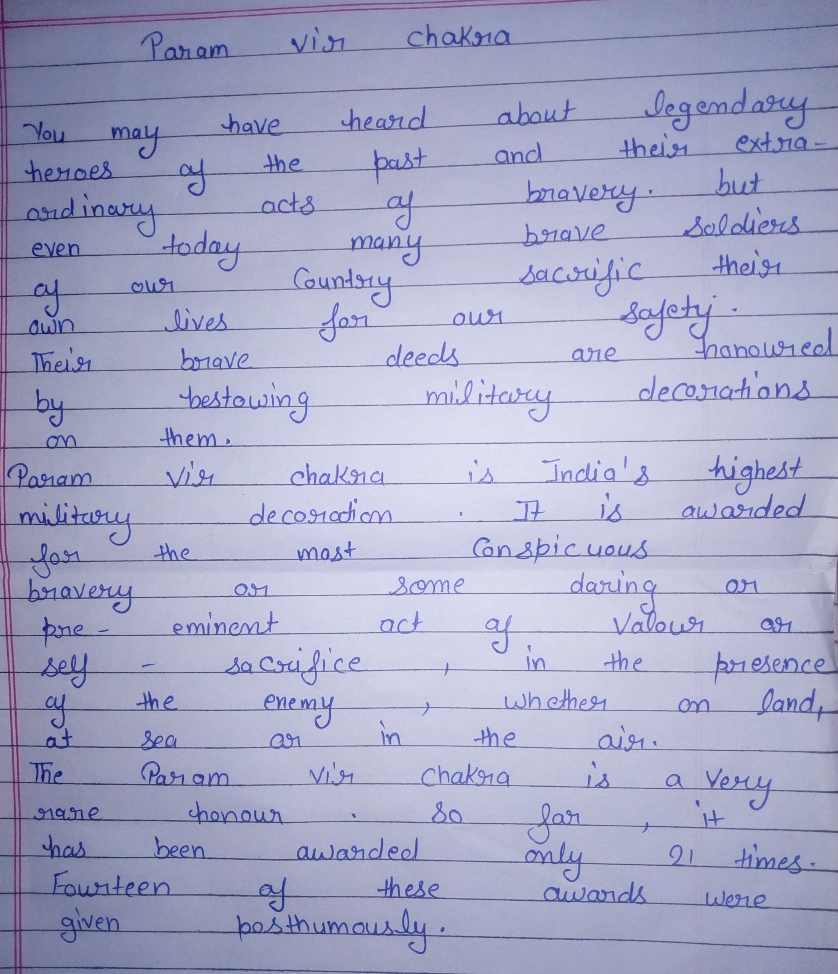 Param vir chakra
You may have heard about legendary
heroes of the past and their extra-
ordinary acts of bravery. but
even today many brave soldiers
of our Country sacrific their
own lives for our safety.
Their brave deeds are honoured
by bestowing military decorations
on them.
Param vir chakra is India's highest
military decoration . It is awarded
for the most Conspicuous
bravery or some daring or
pre- eminent act of Valour or
self - sacrifice , in the presence
of the enemy , whether on land,
at sea or in the air.
The Param vir chakra is a very
rare honour . so far , it
has been awarded only 21 times.
Fourteen of these awards were
given posthumously.